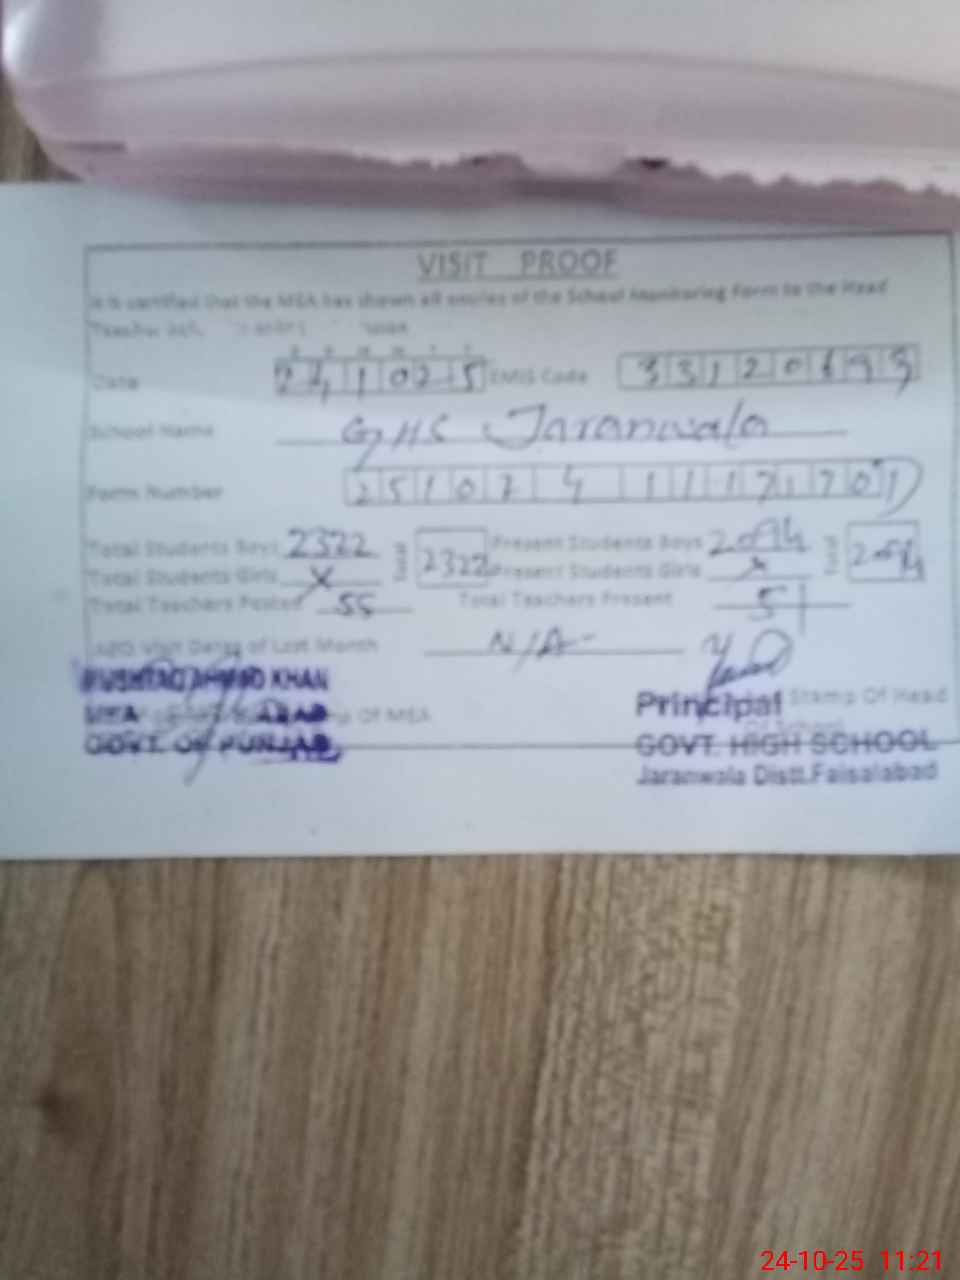 VISIT PROOF
It is certified that the MEA has shown all entries of the School Monitoring Form to the Head
Teacher
Date 241025 EMIS Code 33120693
School Name GHS Jaranwala
Form Number 25107 4
Total Students Boys 2322 2322 Present Students Boys 2094 2094
Total Students Girls X Present Students Girls X
Total Teachers Posted 55 Total Teachers Present 51
AEO Visit Dates of Last Month N/A
AHMAD KHAN
MEA Of MEA Principal Stamp Of Head
GOVT. OF PUNJAB GOVT. HIGH SCHOOL
Jaranwala Distt.Faisalabad
24-10-25 11:21